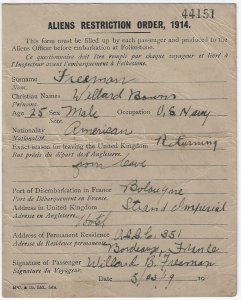 44151
ALIENS RESTRICTION ORDER, 1914.
This form must be filled up by each passenger and produced to the
Aliens Officer before embarkation at Folkestone.
Ce questionnaire doit être rempli par chaque voyageur et livré à
l'Inspecteur avant l'embarquement à Folkestone.
Surname Freeman
Nom
Christian Names Willard Bowns
Prénoms
Age 25 Sex Male Occupation U.S. Navy
Nationality American
Nationalité
Exact reason for leaving the United Kingdom Returning
But précis du départ de l'Angleterre
from leave
Port of Disembarkation in France Bologne
Port de Débarquement en France.
Address in United Kingdom Strand Imperial
Adresse en Angleterre.
Hotel
Address of Permanent Residence 351
Adresse Permanente Bordeaux, France
Signature of Passenger Willard B. Freeman
Signature du Voyageur.
Date 19